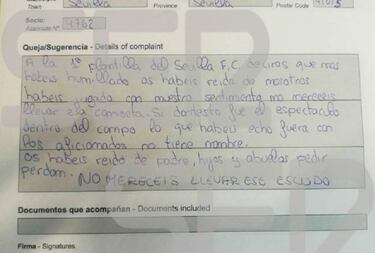 Town
Sevilla
Province
Sevilla
Postal Code
Socio:
Abonado Nº
4762
Queja/Sugerencia - Details of complaint
A la 1ª plantilla del Sevilla F.C. deciros que nos
habeis humillado os habeis reido de nosotros
habeis jugado con nuestro sentimiento no mereceis
llevar esa camiseta. Si dantesto fue el espectaculo
dentro del campo lo que habeis echo fuera con
los aficionados no tiene nombre.
os habeis reido de padre, hijos y abuelas pedir
perdom. NO MERECEIS LLEVAR ESE ESCUDO
Documentos que acompañan - Documents included
Firma - Signatures